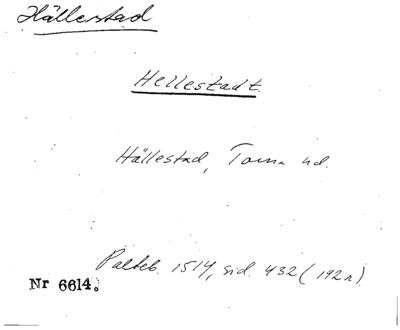 Hällestad
Hellestadt.
Hällestad, Torna hd.
Palteb. 1514, sid. 432 (192 r)
Nr 6614.